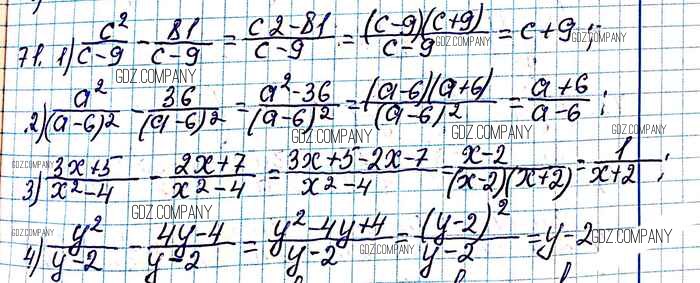 71. 1) c²/(c-9) - 81/(c-9) = (c2-81)/(c-9) = (c-9)(c+9)/(c-9) = c+9;
GDZ.COMPANY GDZ.COMPANY GDZ.COMPANY
2) a²/(a-6)² - 36/(a-6)² = (a²-36)/(a-6)² = (a-6)(a+6)/(a-6)² = (a+6)/(a-6);
GDZ.COMPANY GDZ.COMPANY GDZ.COMPANY
3) (3x+5)/(x²-4) - (2x+7)/(x²-4) = (3x+5-2x-7)/(x²-4) = (x-2)/((x-2)(x+2)) = 1/(x+2);
GDZ.COMPANY GDZ.COMPANY GDZ.COMPANY GDZ.COMPANY
4) y²/(y-2) - (4y-4)/(y-2) = (y²-4y+4)/(y-2) = (y-2)²/(y-2) = y-2
GDZ.COMPANY GDZ.COMPANY GDZ.COMPANY